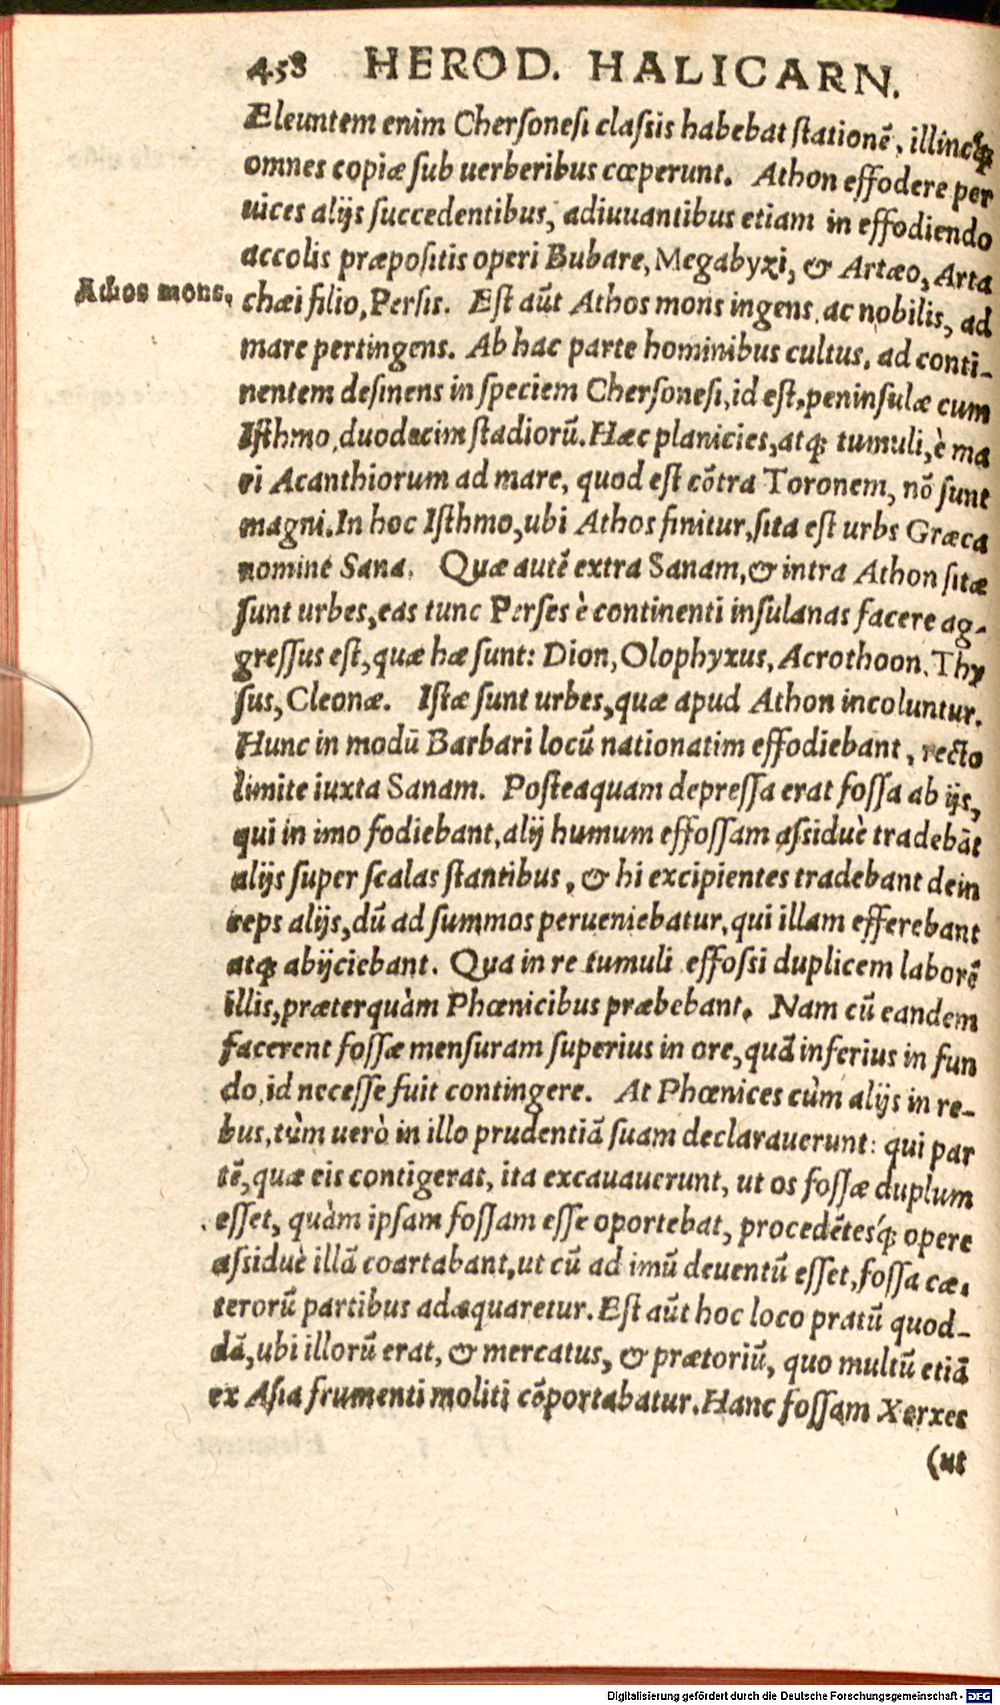 458 HEROD. HALICARN.
Eleuntem enim Cherſoneſi claſsis habebat ſtationē, illincq́;
omnes copiæ ſub uerberibus cœperunt. Athon effodere per
uices alijs ſuccedentibus, adiuuantibus etiam in effodiendo
accolis præpoſitis operi Bubare, Megabyxi, & Artæo, Arta
Athos mons. chæi filio, Perſis. Eſt aūt Athos mons ingens, ac nobilis, ad
mare pertingens. Ab hac parte hominibus cultus, ad conti-
nentem deſinens in ſpeciem Cherſoneſi, id eſt, peninſulæ cum
Iſthmo, duodecim ſtadiorū. Hæc planicies, atq; tumuli, è ma
ri Acanthiorum ad mare, quod eſt cōtra Toronem, nō ſunt
magni. In hoc Iſthmo, ubi Athos finitur, ſita eſt urbs Græca
nomine Sana. Quæ autē extra Sanam, & intra Athon ſitæ
ſunt urbes, eas tunc Perſes è continenti inſulanas facere ag-
greſſus eſt, quæ hæ ſunt: Dion, Olophyxus, Acrothoon, Thy
ſus, Cleonæ. Iſtæ ſunt urbes, quæ apud Athon incoluntur.
Hunc in modū Barbari locū nationatim effodiebant, recto
limite iuxta Sanam. Poſteaquam depreſſa erat foſſa ab ijs,
qui in imo fodiebant, alij humum effoſſam aſsiduè tradebāt
alijs ſuper ſcalas ſtantibus, & hi excipientes tradebant dein
ceps alijs, dū ad ſummos perueniebatur, qui illam efferebant
atq; abijciebant. Qua in re tumuli effoſsi duplicem laborē
illis, præterquàm Phœnicibus præbebant. Nam cū eandem
facerent foſſæ menſuram ſuperius in ore, quā inferius in fun
do, id neceſſe fuit contingere. At Phœnices cùm alijs in re-
bus, tùm uerò in illo prudentiā ſuam declarauerunt: qui par
tē, quæ eis contigerat, ita excauauerunt, ut os foſſæ duplum
eſſet, quàm ipſam foſſam eſſe oportebat, procedētesq́; opere
aſsiduè illā coartabant, ut cū ad imū deuentū eſſet, foſſa cæ-
terorū partibus adæquaretur. Eſt aūt hoc loco pratū quod-
dā, ubi illorū erat, & mercatus, & prætoriū, quo multū etiā
ex Aſia frumenti moliti cōportabatur. Hanc foſſam Xerxes
(ut
Digitalisierung gefördert durch die Deutsche Forschungsgemeinschaft - DFG